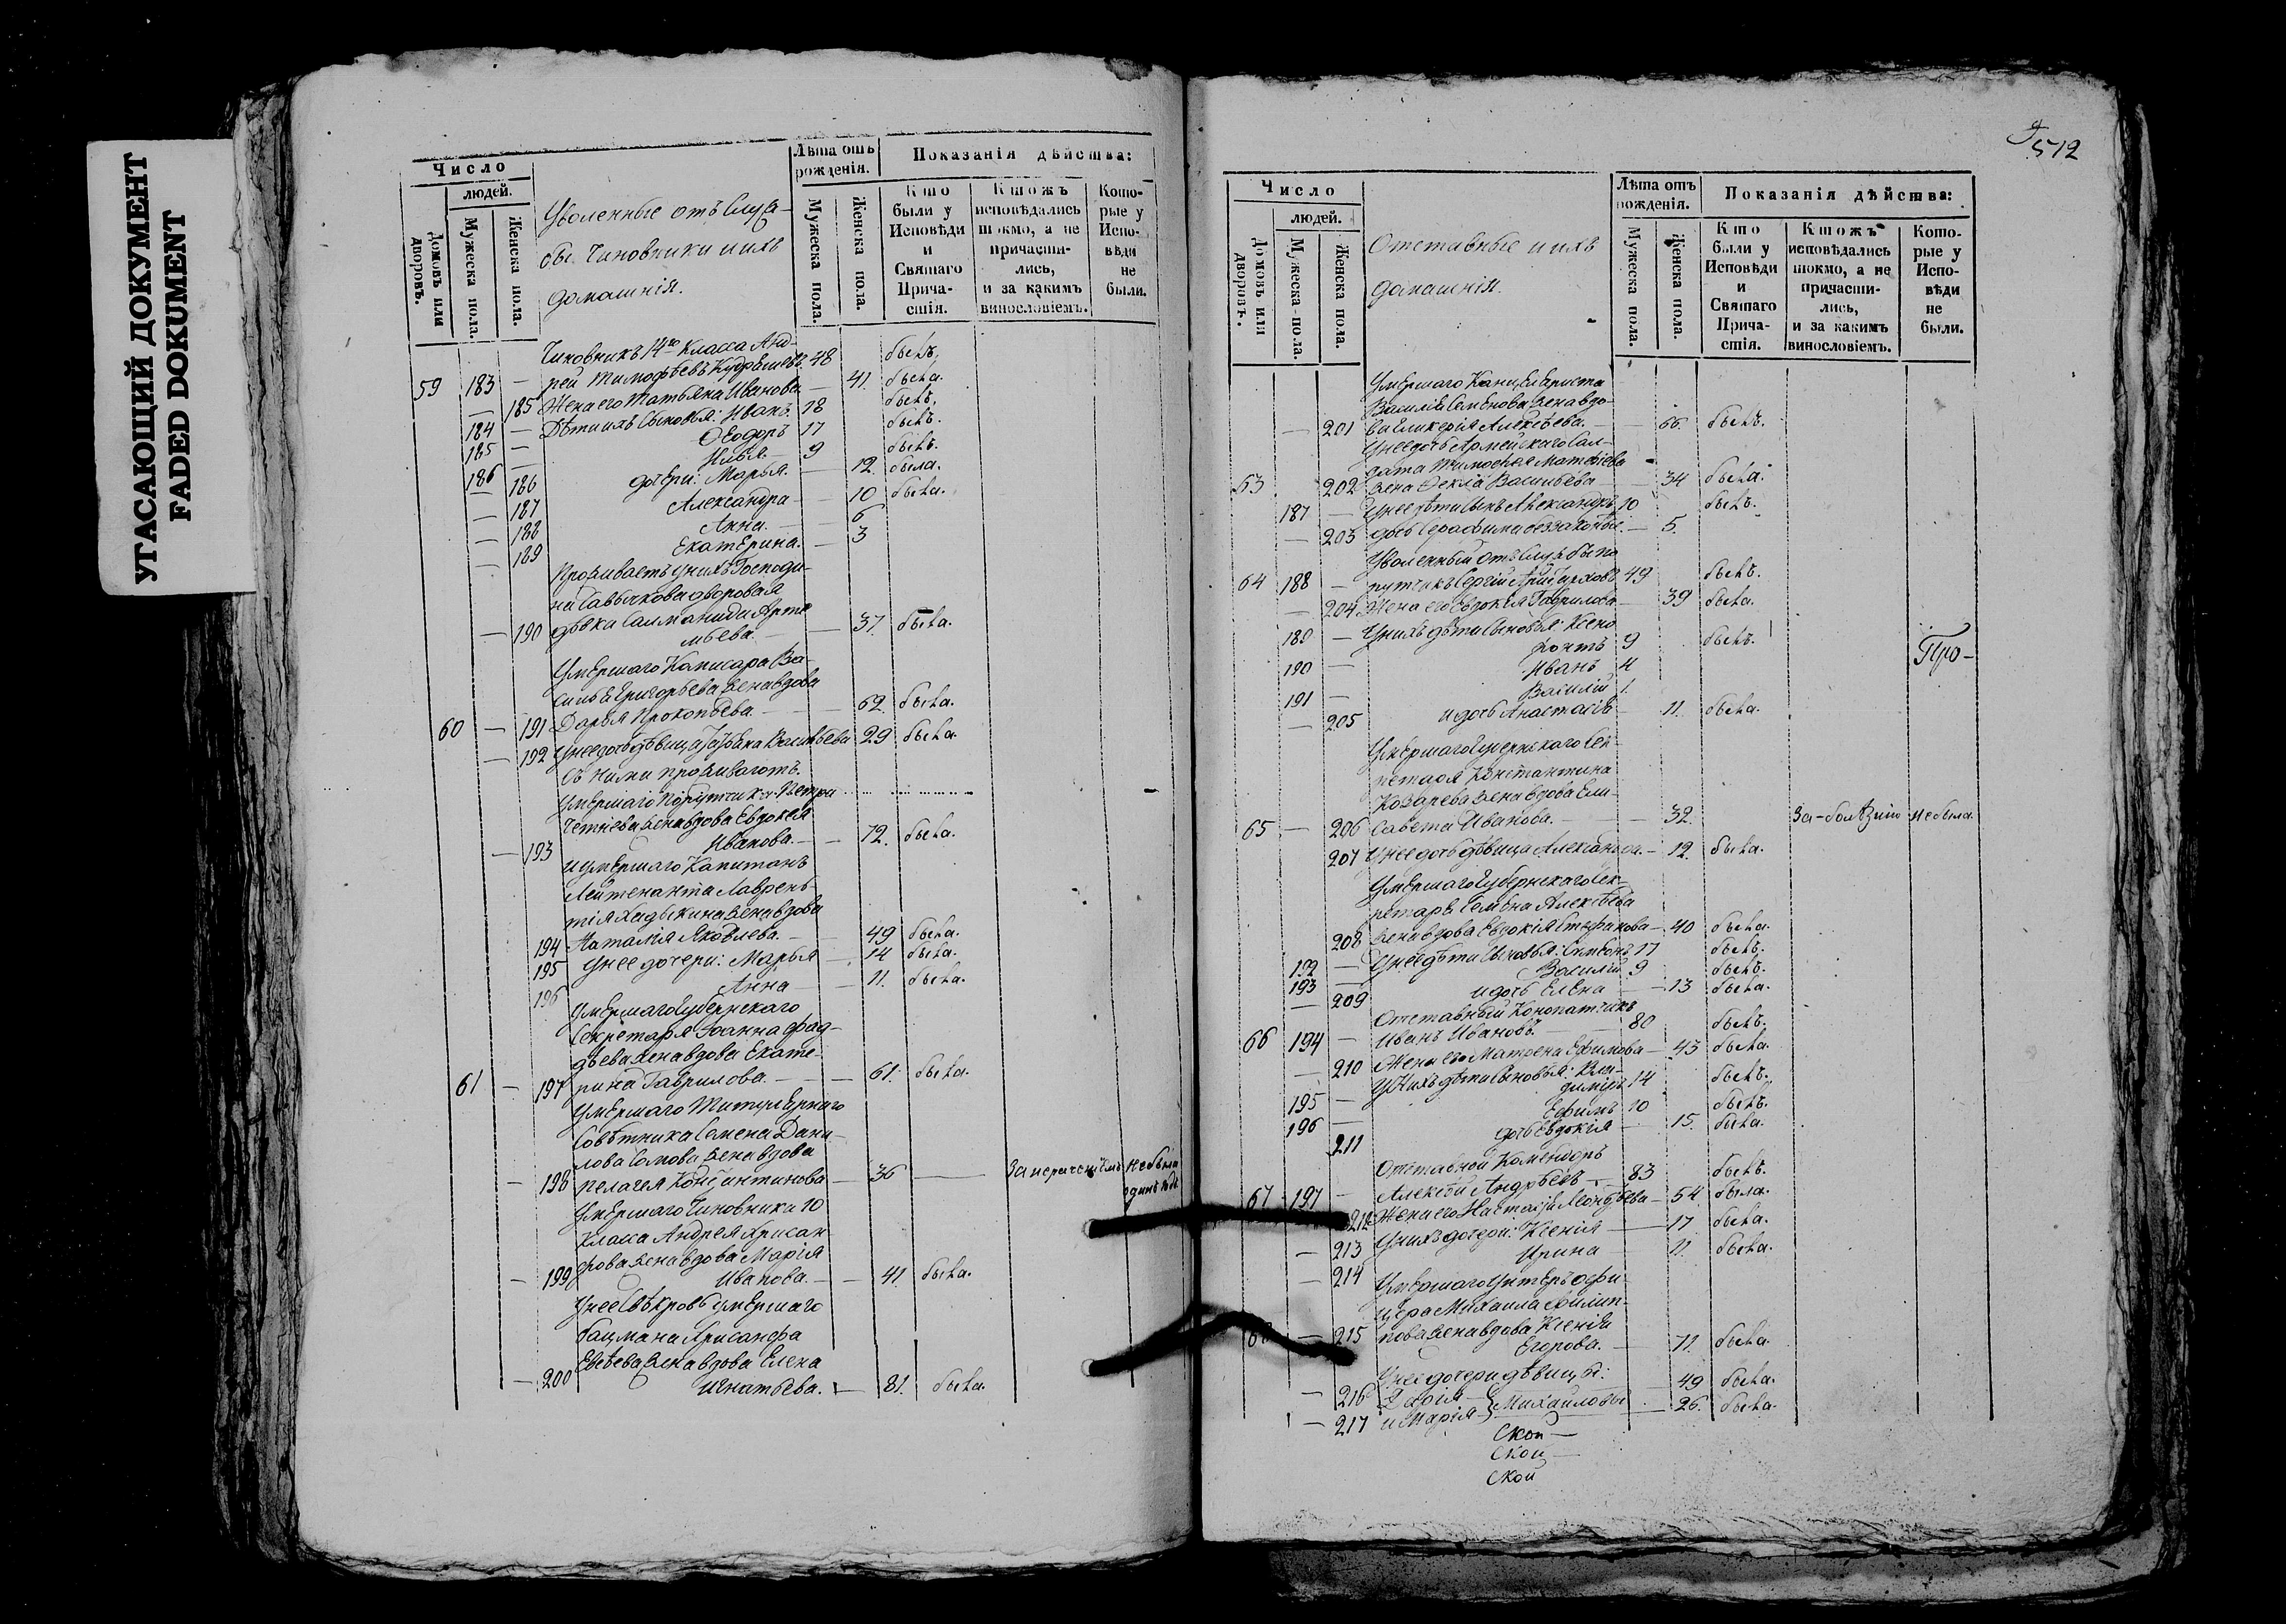 УГАСАЮЩИЙ ДОКУМЕНТ
FADED DOKUMENT
Число
людей.
Домовъ или дворовъ.
Мужеска пола.
Женска пола.
Уволенные отъ служ-
бы Чиновники и ихъ
домашнія.
Лѣта отъ рожденія.
Мужеска пола.
Женска пола.
Показанія дѣйства:
Кто были у Исповѣди и Святаго Прича-стія.
Ктожъ исповѣдались токмо, а не причасти-лись, и за какимъ винословіемъ.
Кото-рые у Испо-вѣди не были.
Чиновникъ 14го Класса Анд-
59 183 — рей Тимофѣевъ 48 былъ.
— 185 Жена его Татьяна Иванова — 41 была.
184 — Дѣти ихъ Сыновья: Иванъ. 18 былъ.
185 — Ѳеодоръ 17 былъ.
186 — Илья. 9 былъ.
— 186 дочери: Марья. — 12 была.
— 187 Александра — 10 была.
— 188 Анна. — 6
— 189 Екатерина. — 3
Проживаетъ у нихъ Господи-
на дворовая
— 190 дѣвка Арте-
мьева. — 37. была.
Умершаго Ва-
силья Григорьева жена вдова
60 — 191 Дарья Прокопьева. — 62. была.
— 192 У нее дочь дѣвица Васильева 29 была.
Съ ними проживаютъ.
Умершаго Порутчика Петра
жена вдова Евдокея
— 193 Иванова. — 72. была.
и умершаго Капитанъ
Лейтенанта Лаврен-
тія жена вдова
194 Наталія Яковлева. — 49 была.
195 У нее дочери: Марья — 14 была.
196 Анна — 11. была.
Умершаго Губернскаго
Секретаря Іоанна Фад-
дѣева жена вдова Екате-
61 — 197 рина Гаврилова. — 61. была.
Умершаго Титулярнаго
Совѣтника Семена Дани-
лова Сомова жена вдова
— 198 Пелагея Константинова — 36 — не была
одинъ годъ
Умершаго Чиновника 10
Класса Андрея Хрисан-
фова жена вдова Марія
— 199 Иванова. — 41. была.
У нее Свѣкровь умершаго
бацмана Хрисанфа
жена вдова Елена
— 200 Игнатьева. — 81. была.
512
Число
людей.
Домовъ или дворовъ.
Мужеска пола.
Женска пола.
Отставные и ихъ
домашнія.
Лѣта отъ рожденія.
Мужеска пола.
Женска пола.
Показанія дѣйства:
Кто были у Исповѣди и Святаго Прича-стія.
Ктожъ исповѣдались токмо, а не причасти-лись, и за какимъ винословіемъ.
Кото-рые у Испо-вѣди не были.
Умершаго Канцеляриста
Василія Семенова жена вдо-
— 201 ва Гликерія Алексѣева. — 66. былъ.
У нее дочь Армейскаго Сал-
дата Тимофея Матвѣева
53 202 жена Ѳекла Васильева — 34 была.
187 — У нее дѣти Сынъ Александръ 10 былъ.
— 203 дочь Серафима — 5.
Уволенный отъ Службы по-
64 188 — рутчикъ Сергій 49 былъ.
— 204 Жена его Евдокія Гаврилова — 39 была.
189 — У нихъ дѣти Сыновья: Ксено-
фонтъ 9 былъ.
190 — Иванъ 4
191 — Василій 1.
— 205 и дочь Анастасія — 11. была.
Про-
Умершаго Губернскаго Сек-
ретаря Константина
Козарева жена вдова Ели-
65 — 206 савета Иванова. — 32. За-болѣзнію не была
207 У нее дочь дѣвица Александра. — 12. была.
Умершаго Губернскаго Сек-
ретаря Семена Алексѣева
208 жена вдова Евдокія Стефанова — 40 была.
192 — У нее дѣти Сыновья: Симеонъ 17 былъ.
193 — Василій 9 былъ.
— 209 и дочь Елена — 13 была.
Отставный Конопатчикъ
66 194 — Иванъ Ивановъ. — 80 былъ.
— 210 Жена его Матрена Ефимова — 43 была.
У Нихъ дѣти Сыновья: Вла-
195 — димиръ 14 былъ.
196 — Ефимъ 10 былъ.
211 дочь Евдокія — 15. была.
Отставной Комендоръ
67 197 — Алексѣй Андрѣевъ — 83 былъ.
212 Жена его Настасія Леонтьева — 54. была.
— 213 У нихъ дочери: Ксенія — 17 была.
— 214 Ирина — 11. была.
Умершаго Унтеръ офи-
цера Михаила Филип-
— 215 пова жена вдова Ксенія
Егорова. — 71. была.
У нее дочери дѣвицы:
— 216 Дарія — } Михайловы — 49 была.
— 217 и Марія — 26. была.
Ской —
Ской —
Ской